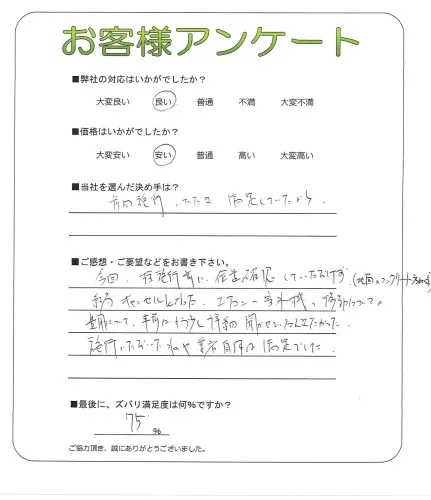 お客様アンケート
■弊社の対応はいかがでしたか?
大変良い 良い 普通 不満 大変不満
■価格はいかがでしたか?
大変安い 安い 普通 高い 大変高い
■当社を選んだ決め手は?
前回施行いただき 満足していたから.
■ご感想・ご要望などをお書き下さい。
今回、 施行前に 位置確認していただけず
キャンセルとなった. エアコン 室外機の 移動について、
費用について、事前にもう少し詳細 聞かせていただきたかった.
施行いただいた 業者自体は 満足でした.
■最後に、ズバリ満足度は何%ですか?
75 %
ご協力頂き、誠にありがとうございました。